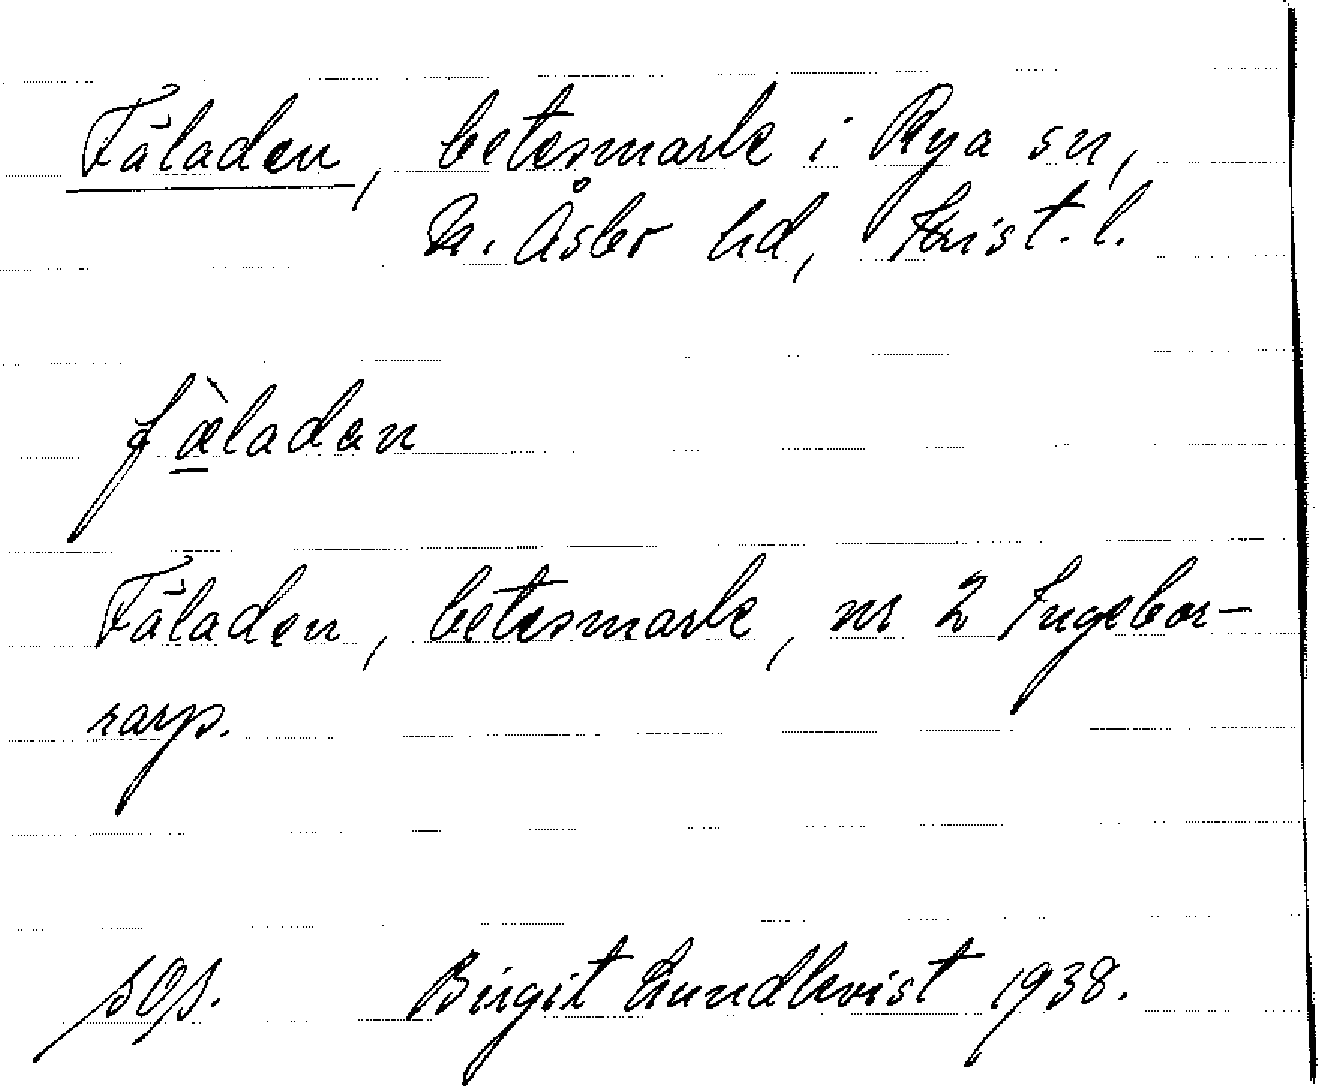 Fäladen, betesmark i Rya sn,
N. Åsbo hd, Krist. l.
fæ̀ladən
Fäladen, betesmark, nr 2 Ingebor-
rarp.
sOs. Birgit Lundkvist 1938.